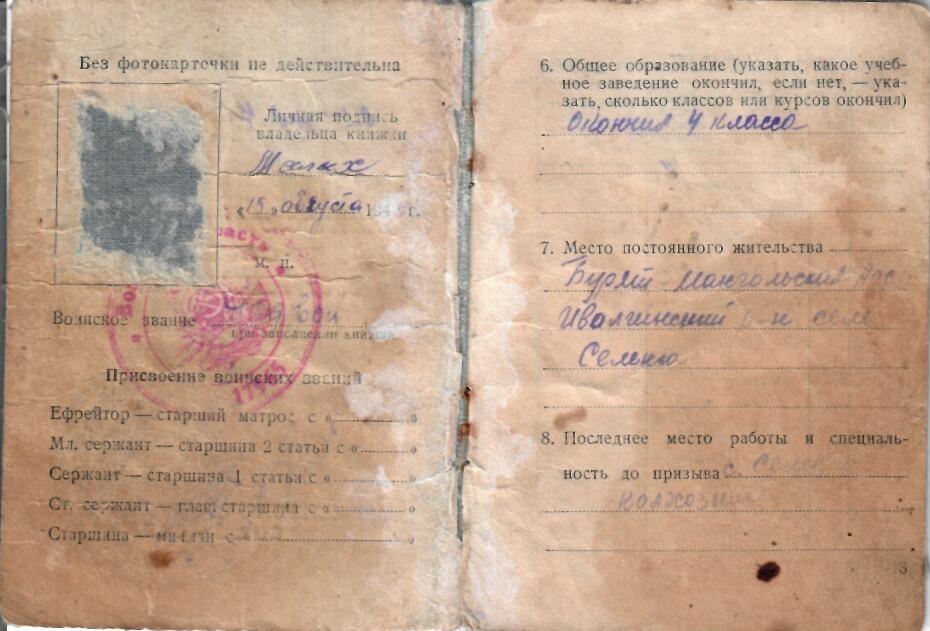 Без фотокарточки не действительна
Личная подпись
владельца книжки
«15» августа 194 г.
м. п.
Воинское звание
при заполнении книжки
Присвоение воинских званий
Ефрейтор — старший матрос с «..........»
Мл. сержант — старшина 2 статьи с «..........»
Сержант — старшина 1 статьи с «..........»
Ст. сержант — глав. старшина с «..........»
Старшина — мичман с «..........»
6. Общее образование (указать, какое учеб-
ное заведение окончил, если нет, — ука-
зать, сколько классов или курсов окончил)
Окончил 4 класса
7. Место постоянного жительства
Бурят-Монгольская
Иволгинский р-н село
8. Последнее место работы и специаль-
ность до призыва с.
колхозник
3